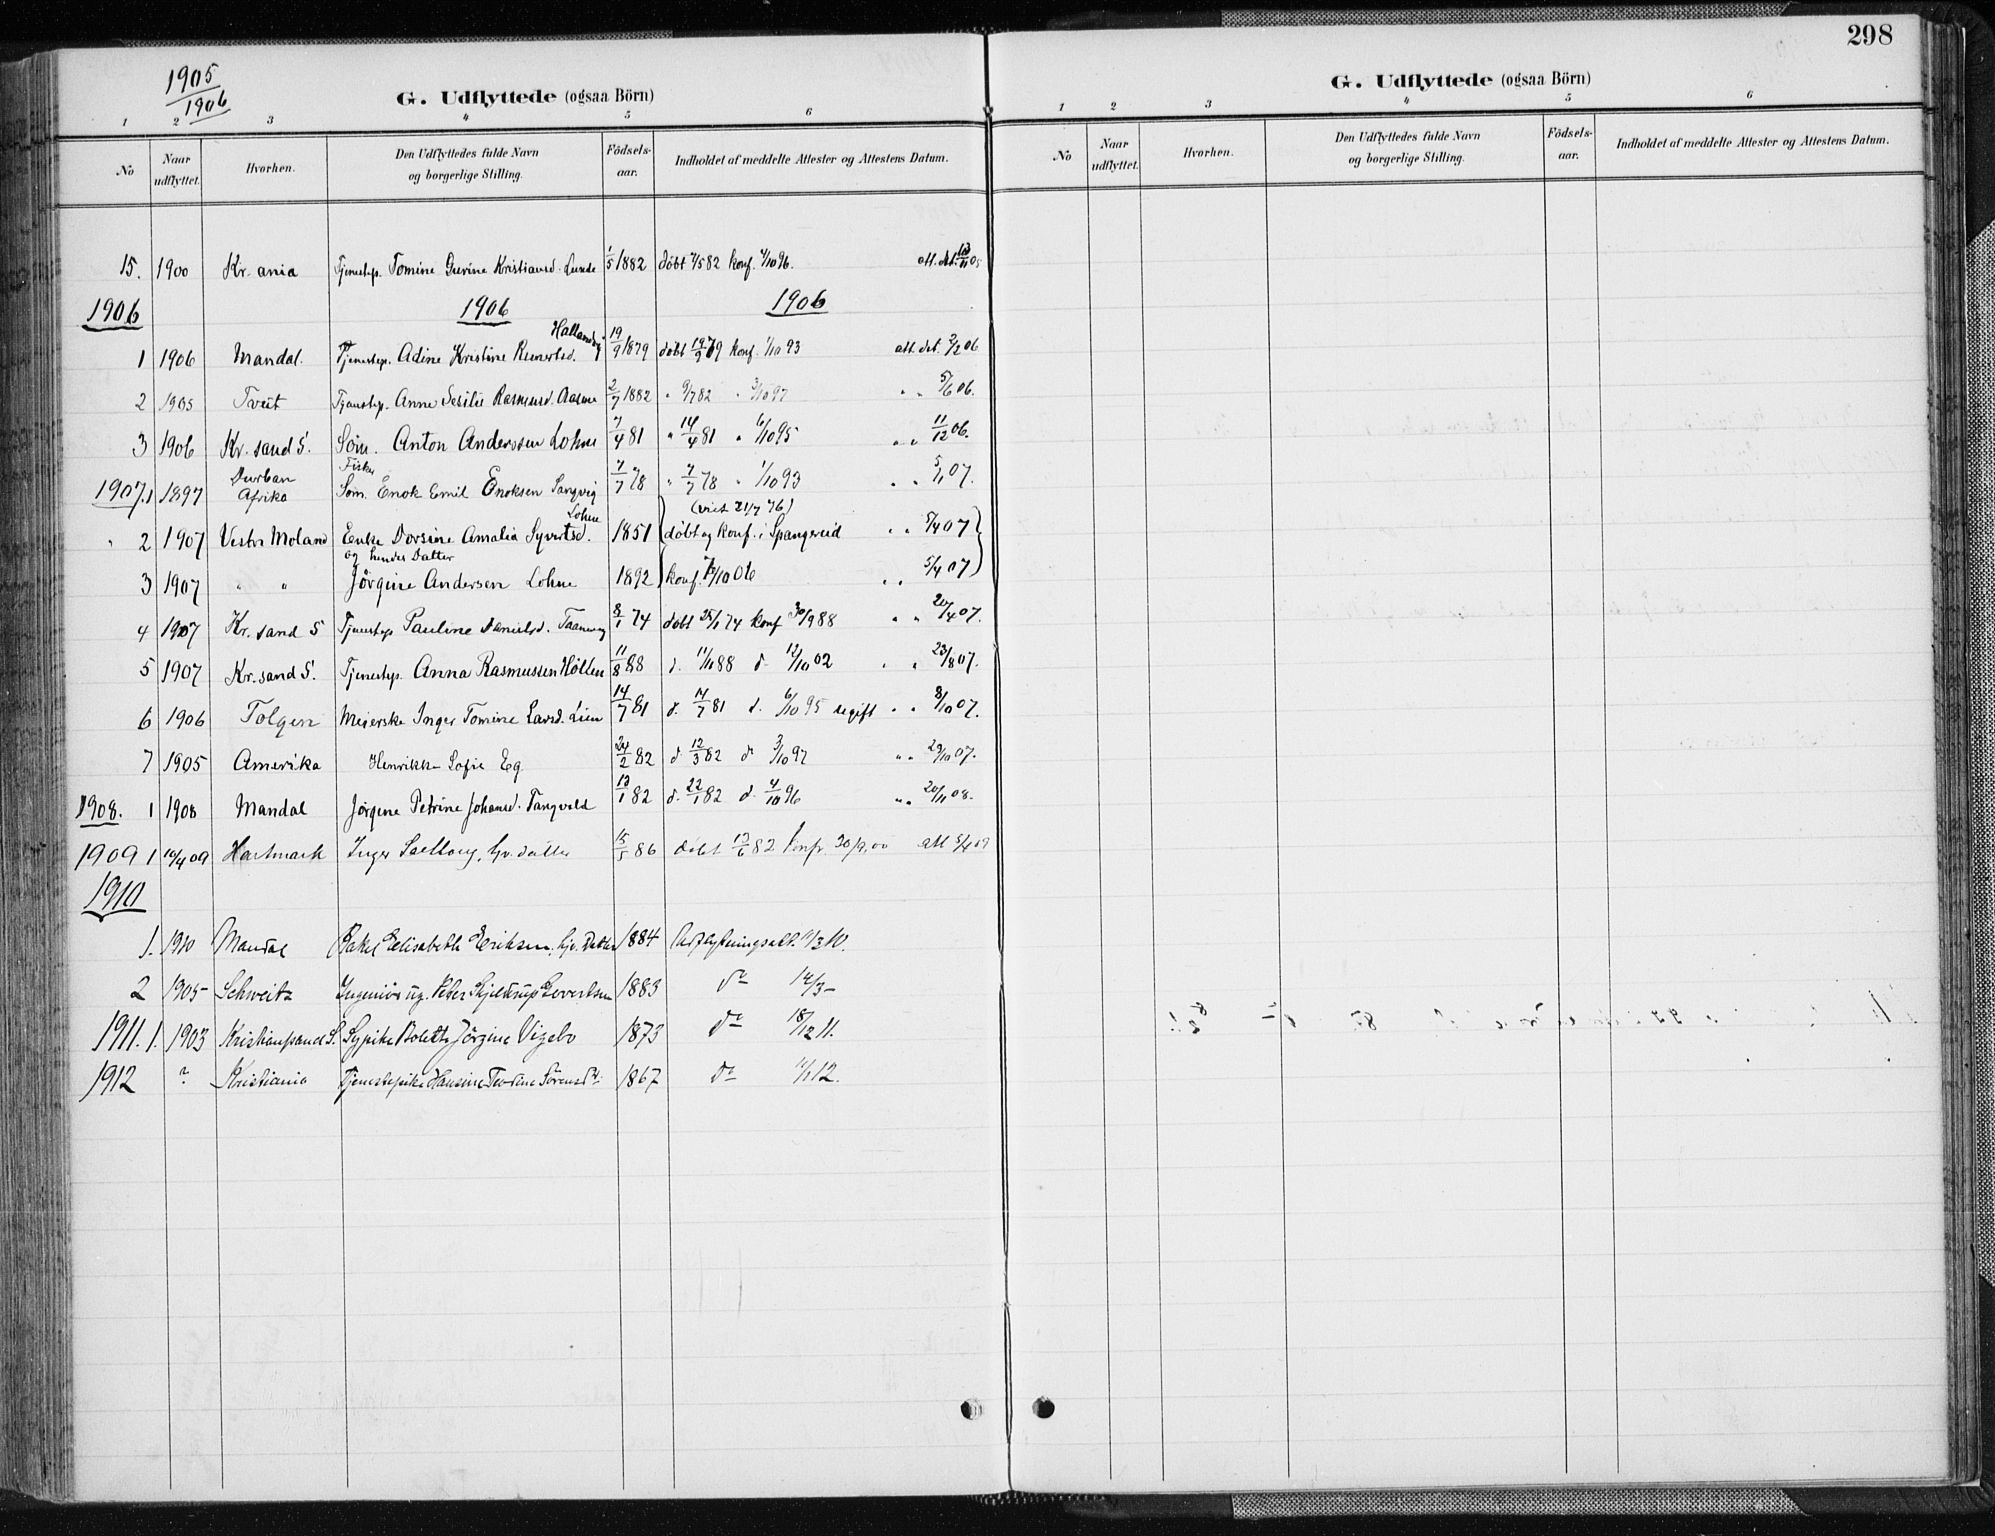 298
1905
1906
G. Udflyttede (ogsaa Börn)
1 2 3 4 5 6
No
Naar udflyttet.
Hvorhen.
Den Udflyttedes fulde Navn og borgerlige Stilling.
Födsels-aar.
Indholdet af meddelte Attester og Attestens Datum.
15. 1900 Kr. ania Tjenestep. Tomine Gurine Kristiansd. Lunde 1/5 1882 döbt 7/5 82 konf. 4/10 96. att. dat. 05
1906 1906 1906
Hallandvig
1 1906 Mandal. Tjenestep. Adine Kristine Reinertsd. 19/9 1879 döbt konf. 1/10 93 att. dat. 3/2 06
2 1905 Tveit Tjenestep. Anne Sesilie Rasmusd. Aasene 2/7 1882 " 9/7 82 " 3/10 97 " " 5/6 06.
3 1906 Kr. sand S. Söm. Anton Anderssen Lohne 7/4 81 " 14/4 81 " 6/10 95 " " 11/12 06.
Durban Fisker
1907. 1 1897 Afrika Söm. Enok Emil Enoksen Sangvig 7/7 78 " 7/7 78 " 1/10 93 " " 5/1 07.
Lohne (viet 21/7 76)
" 2 1907 Vestre Moland Enke Dorsine Amalia Syvertsd. 1851 döbt og konf. i Spangereid " " 5/4 07
og hendes Datter
3 1907 " " Jörgine Andersen Lohne 1892 konf. 7/10 06 " " 5/4 07
4 1907 Kr. sand S Tjenestep Pauline Danielsd. 8/1 74 döbt 25/1 74 konf 30/9 88 " " 20/4 07.
5 1907 Kr. sand S. Tjenestep. Anna Rasmussen Hölten 11/8 88 d. 88 d. 12/10 02 " " 23/8 07.
6 1906 Tolgen Meierske Inger Tomine Larsd. Lien 14/7 81 d. 14/7 81 d. 6/10 95 ugift " " 8/10 07.
7 1905 Amerika Henrikke Sofie Eg 24/2 82 d 12/3 82 d 3/10 97 " " 29/10 07.
1908. 1 1908 Mandal Jörgine Petrine Johansd. Tangvald 13/1 82 d. 22/1 82 d. 4/10 96 " " 20/11 08.
1909 1 10/4 09 Hartmark Inger 15/5 86 döbt 13/6 82 konfr. 30/9. 00 att 5/4 09
1910
1. 1910 Mandal Rakel Elisabeth Eriksen, Gv. Datter 1884 Udflytningsatt. 3 10.
2 1905 Schweitz Ingeniör ug. Peter Skjeltrup Evertsen 1883 do 14/3 –
1911. 1. 1903 Kristiansand S. Sypike Bolette Jörgine Vigebo 1873 do 18/12 11.
1912 ? Kristiania Tjenestepike Hansine Teodine Sörensdt. 1867 do 12.
G. Udflyttede (ogsaa Börn)
1 2 3 4 5 6
No
Naar udflyttet.
Hvorhen.
Den Udflyttedes fulde Navn og borgerlige Stilling.
Födsels-aar.
Indholdet af meddelte Attester og Attestens Datum.